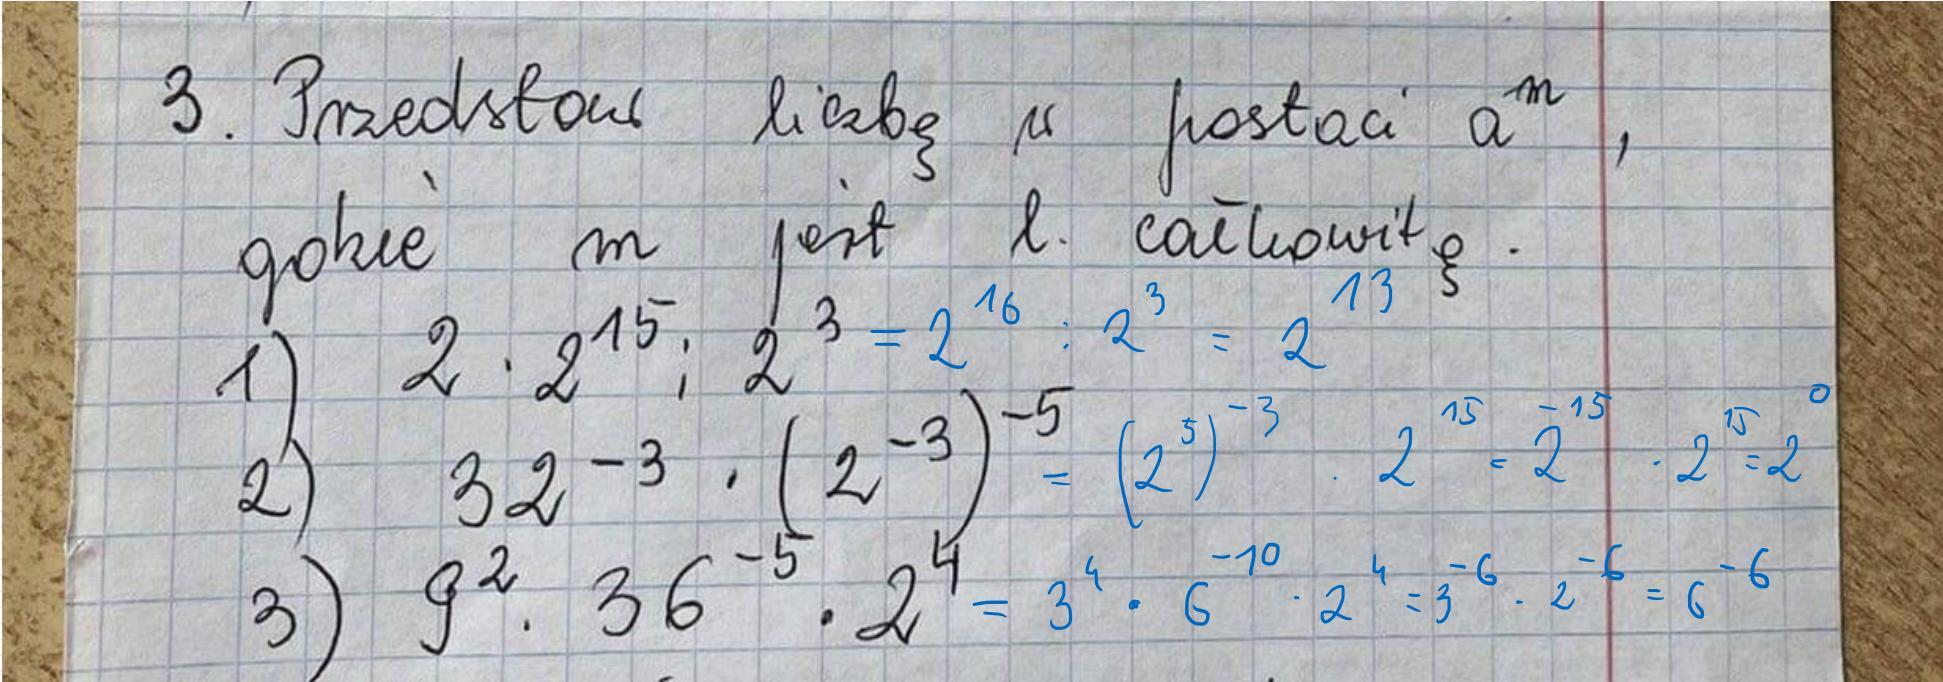 3. Przedstaw liczbę w postaci a^m,
gdzie m jest l. całkowitą.
1) 2 · 2^15 : 2^3 = 2^16 : 2^3 = 2^13
2) 32^-3 · (2^-3)^-5 = (2^5)^-3 · 2^15 = 2^-15 · 2^15 = 2^0
3) 9^2 · 36^-5 · 2^4 = 3^4 · 6^-10 · 2^4 = 3^-6 · 2^-6 = 6^-6